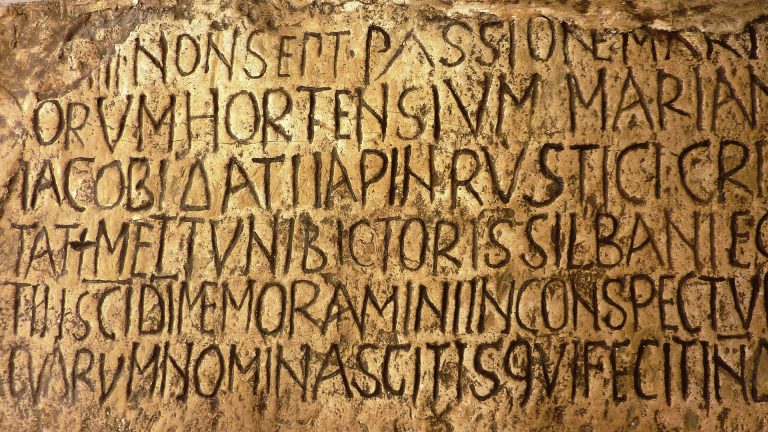 NON SEPT· PASSIONE MART
ORVM HORTENSIVM MARIAN
IACOBI DATI IAPIN RVSTICI CRI
TATI METTVNI BICTORIS SILBANI EG
TII SCI DI MEMORAMINI IN CONSPECTV
CVARVM NOMINA SCITIS QVI FECIT IN